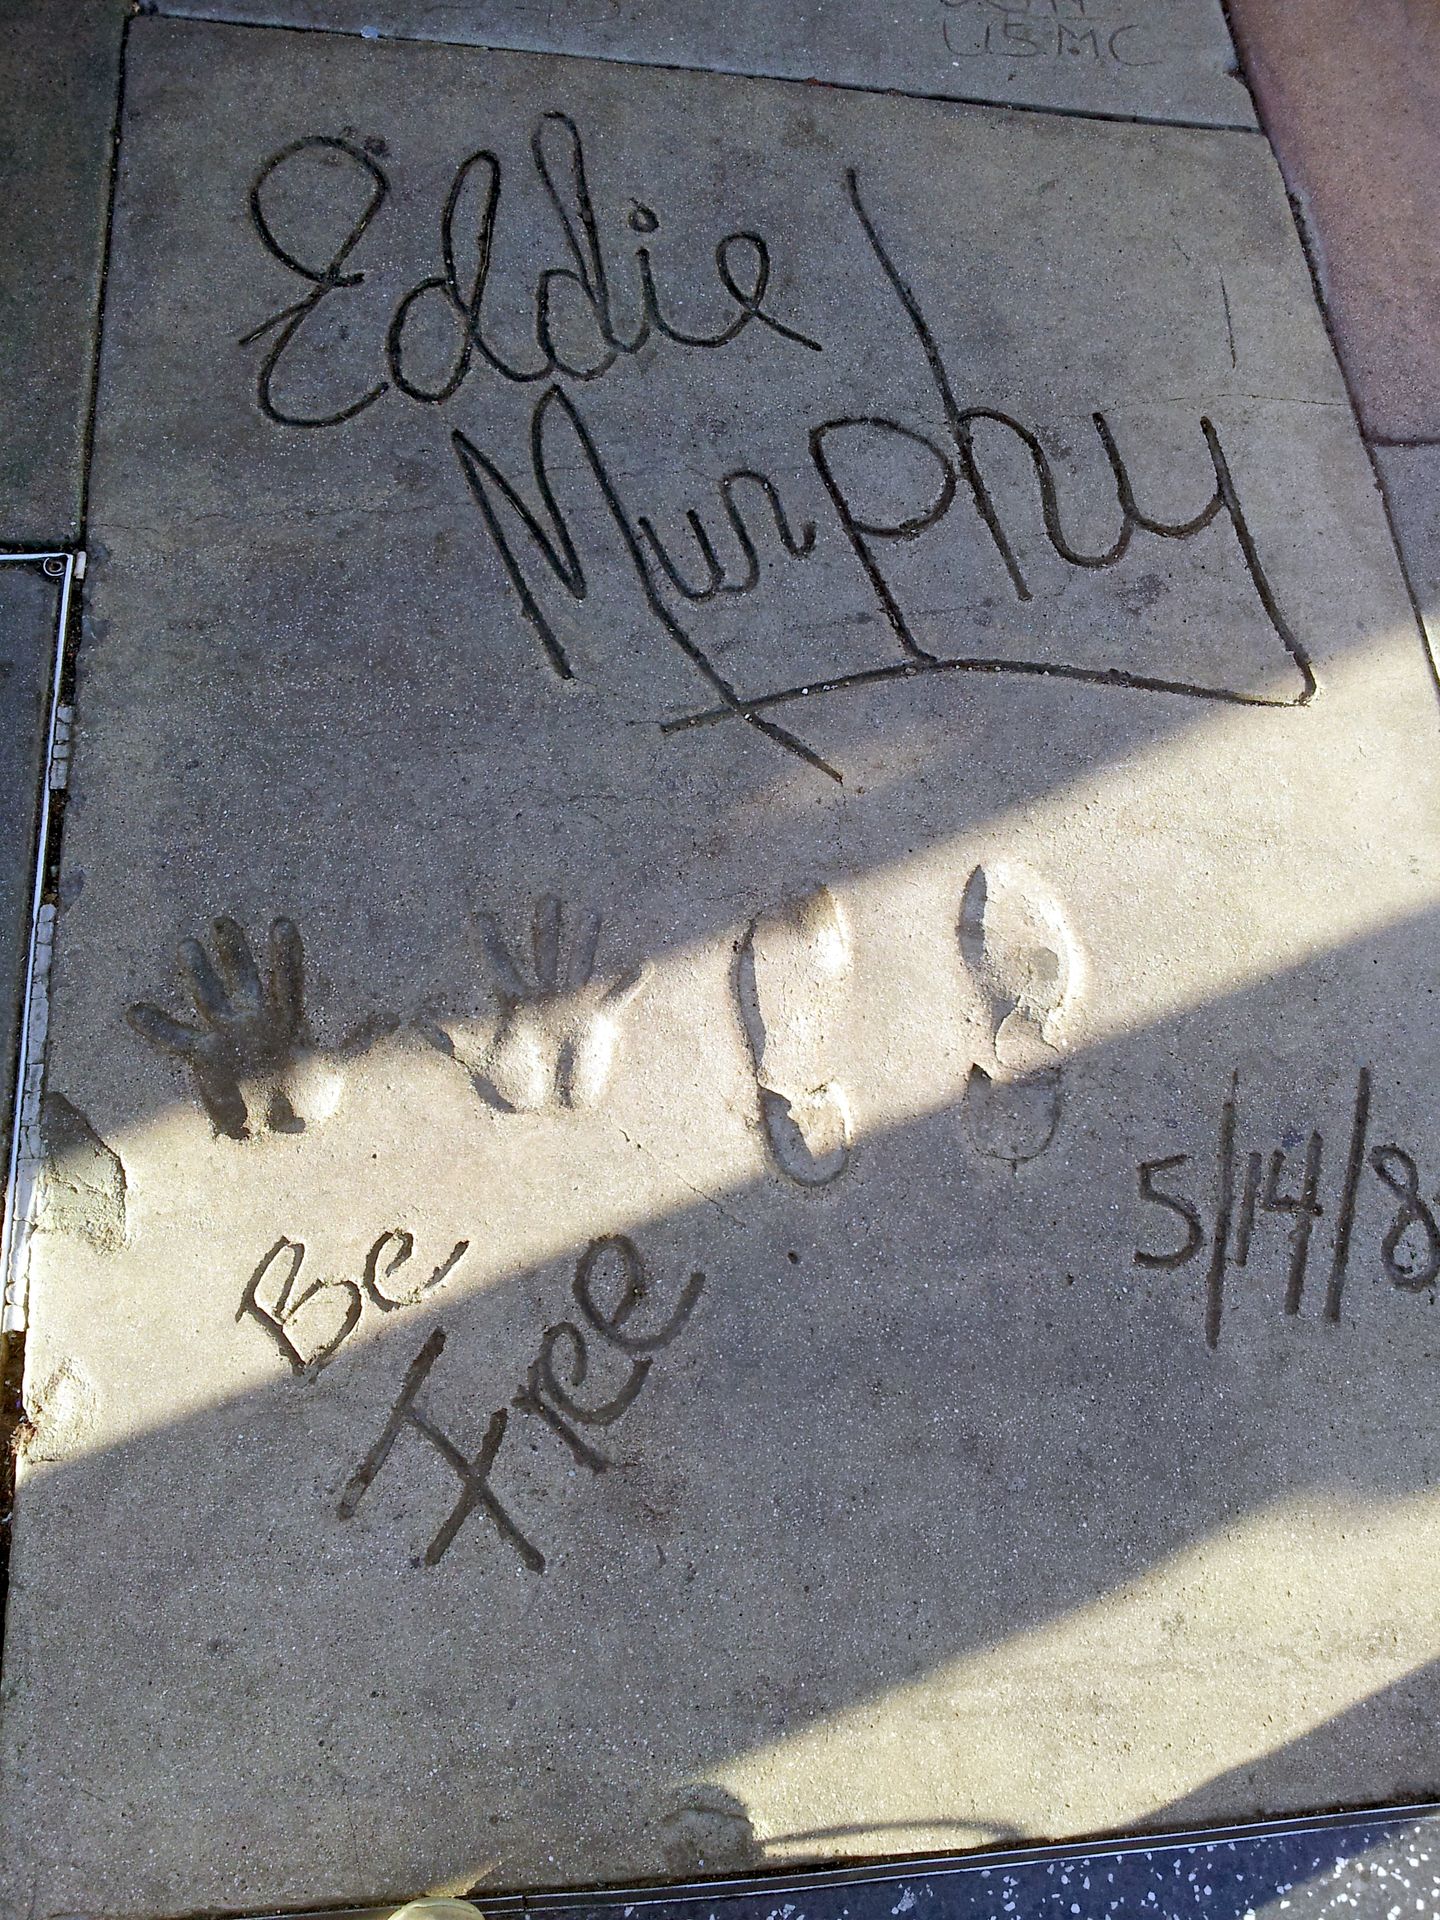 USMC
Eddie
Murphy
5/14/8
Be
Free